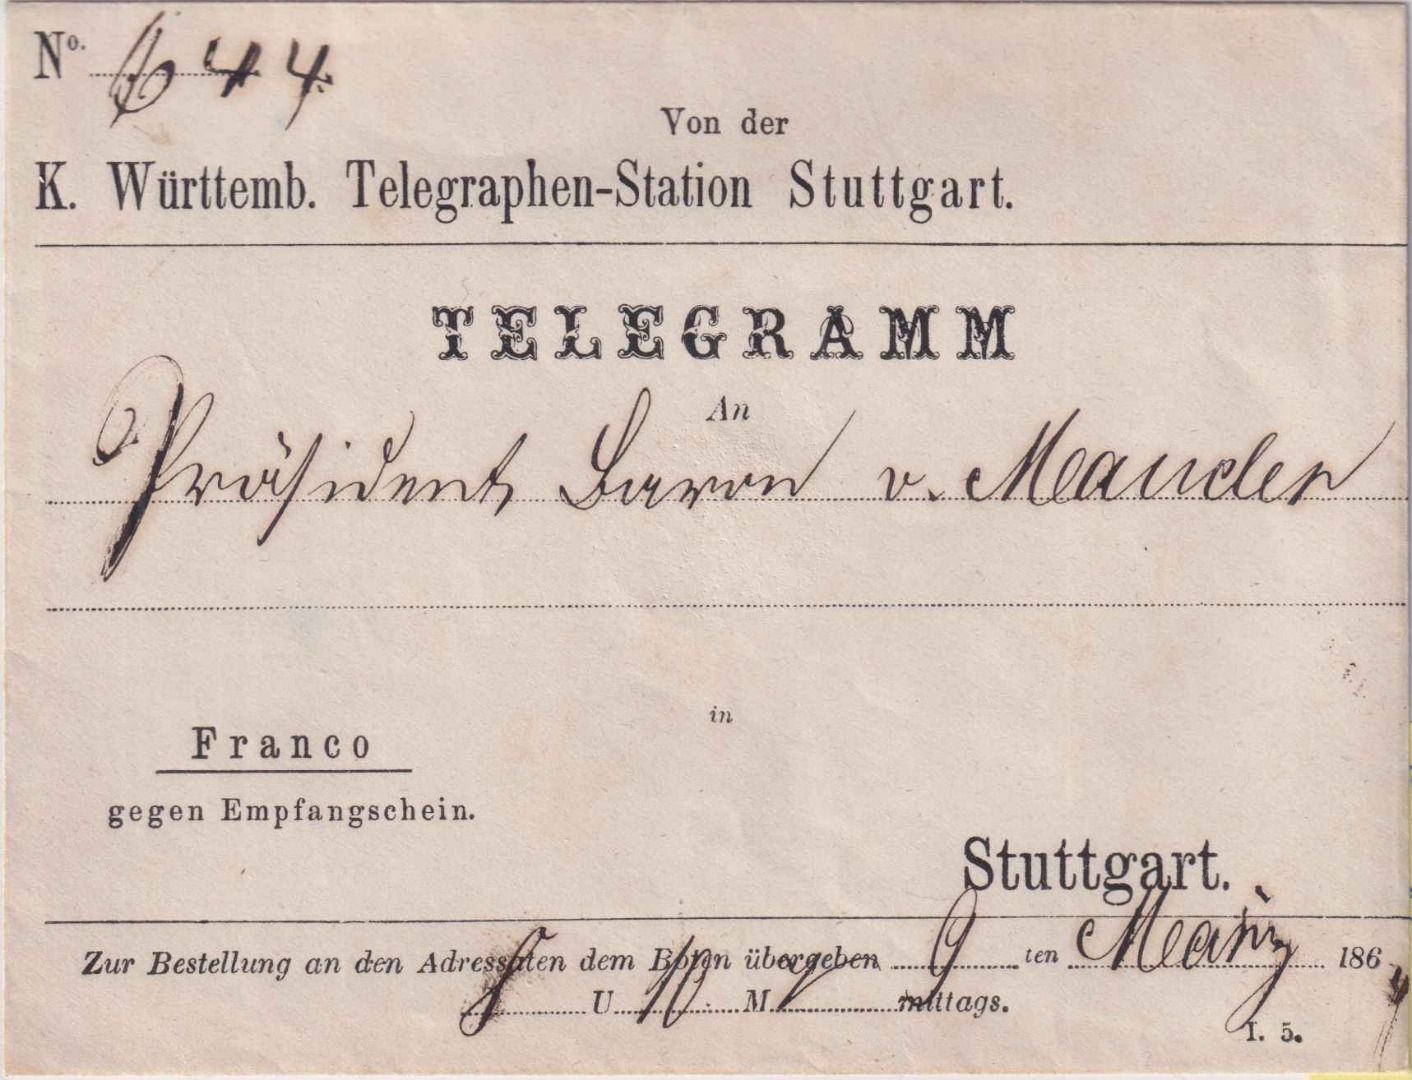 No. 644
Von der
K. Württemb. Telegraphen-Station Stuttgart.
TELEGRAMM
An
Präsident Baron v. Maucler
in
Franco
gegen Empfangschein.
Stuttgart.
Zur Bestellung an den Adressaten dem Boten übergeben 9 ten März 186
U. 10 M. mittags.
I. 5.